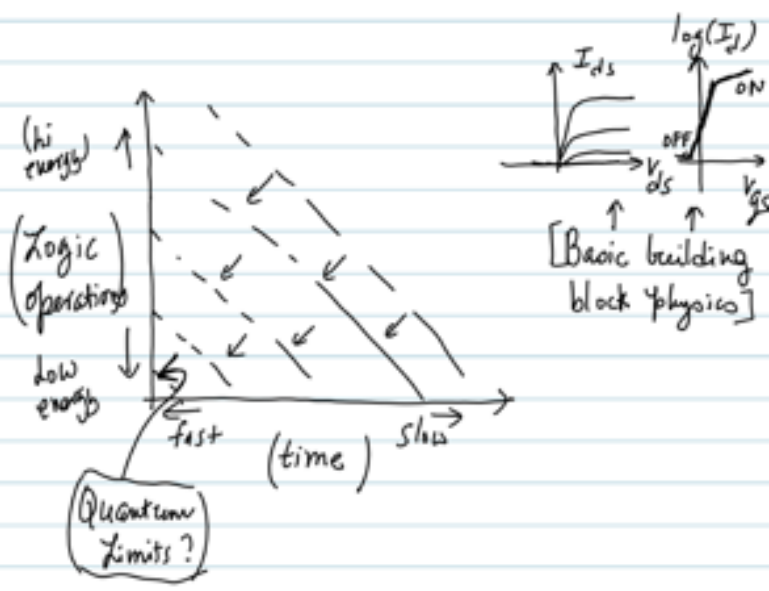 (hi
energy)
(Logic
operations)
Low
energy
fast
slow
(time)
Quantum
Limits?
Ids
Vds
log(Id)
ON
OFF
Vgs
[Basic building
block physics]